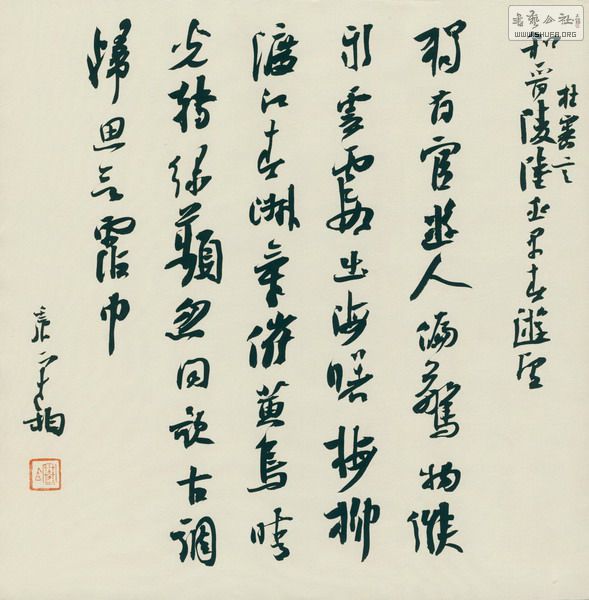 書藝公社
WWW.SHUFA.ORG
和晉陵陸丞早春遊望
杜審言
獨有宦遊人偏驚物候
新雲霞出海曙梅柳
渡江春淑氣催黃鳥晴
光轉綠蘋忽聞歌古調
歸思欲霑巾